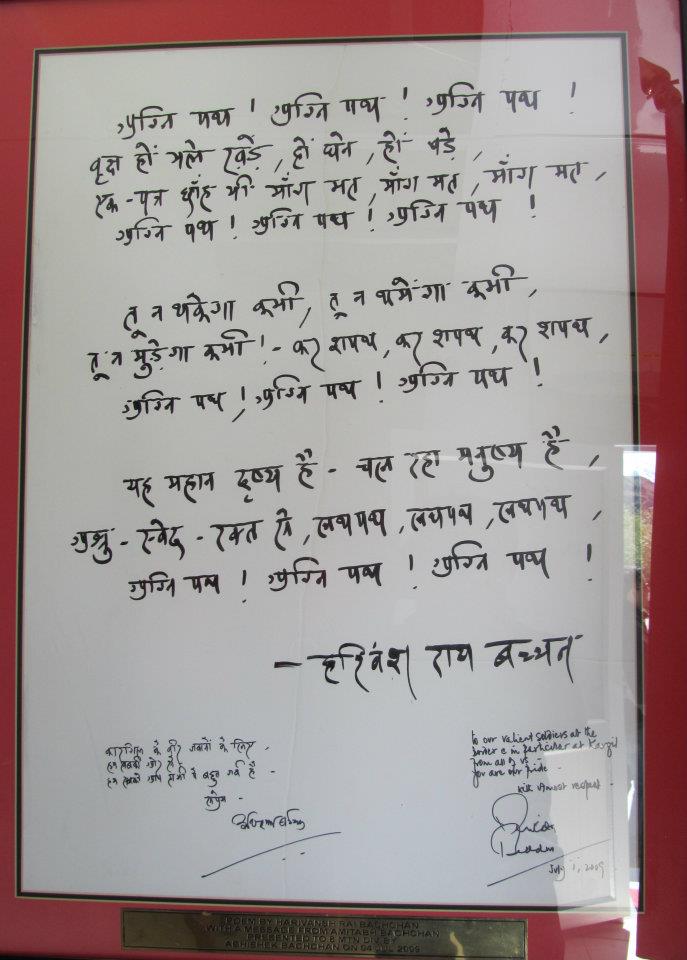 अग्नि पथ ! अग्नि पथ ! अग्नि पथ !
वृक्ष हों भले खड़े, हों घने, हों बड़े,
एक-पत्र छाँह भी माँग मत, माँग मत, माँग मत,
अग्नि पथ ! अग्नि पथ ! अग्नि पथ !
तू न थकेगा कभी, तू न थमेगा कभी,
तू न मुड़ेगा कभी ! - कर शपथ, कर शपथ, कर शपथ,
अग्नि पथ ! अग्नि पथ ! अग्नि पथ !
यह महान दृष्य है - चल रहा मनुष्य है,
अश्रु - स्वेद - रक्त से, लथपथ, लथपथ, लथपथ,
अग्नि पथ ! अग्नि पथ ! अग्नि पथ !
— हरिवंश राय बच्चन
कारगिल के वीर जवानों के लिए,
हम सबकी ओर से,
हम सबको आप सभी पे बहुत गर्व है -
सप्रेम
to our valient soldiers at the
border & in particular at Kargil
from all of us -
you are our pride -
with utmost respect -
July 1, 2009
POEM BY HARIVANSH RAI BACHCHAN
WITH A MESSAGE FROM AMITABH BACHCHAN
PRESENTED TO 8 MTN DIV BY
ABHISHEK BACHCHAN ON 04 JUL 2009